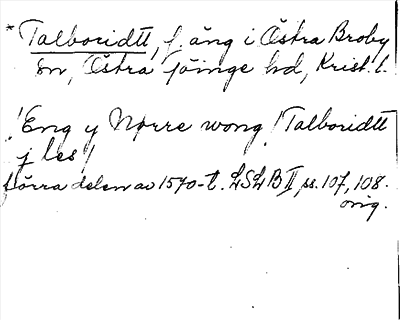 * Talboridtt, f. äng i Östra Broby
sn, Östra Göinge hd, Krist. l.
! Eng y Nørre wong ! Talboridtt
j les !
förra delen av 1570-t. LSLB II ss. 107, 108.
orig.